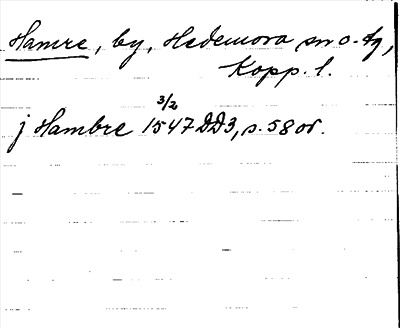 Hamre, by, Hedemora sn o. tg,
Kopp. l.
j Hambre 1547 3/2 DD3, s. 58 or.